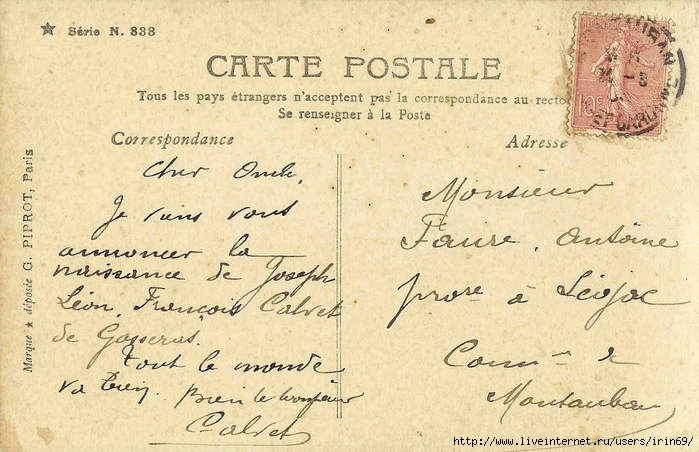 ★ Série N. 838
CARTE POSTALE
Tous les pays étrangers n'acceptent pas la correspondance au recto
Se renseigner à la Poste
Correspondance
Cher Oncle,
Je viens vous
annoncer la
naissance de Joseph
Léon, François Calvet
de Gasseras.
tout le monde
va bien. Bien le bonjour
Calvet
Adresse
Monsieur
Faure, Antoine
à Léojac
Comm-ne de
Montauban
10c
Marque ★ déposée G. PIPROT, Paris
http://www.liveinternet.ru/users/irin69/